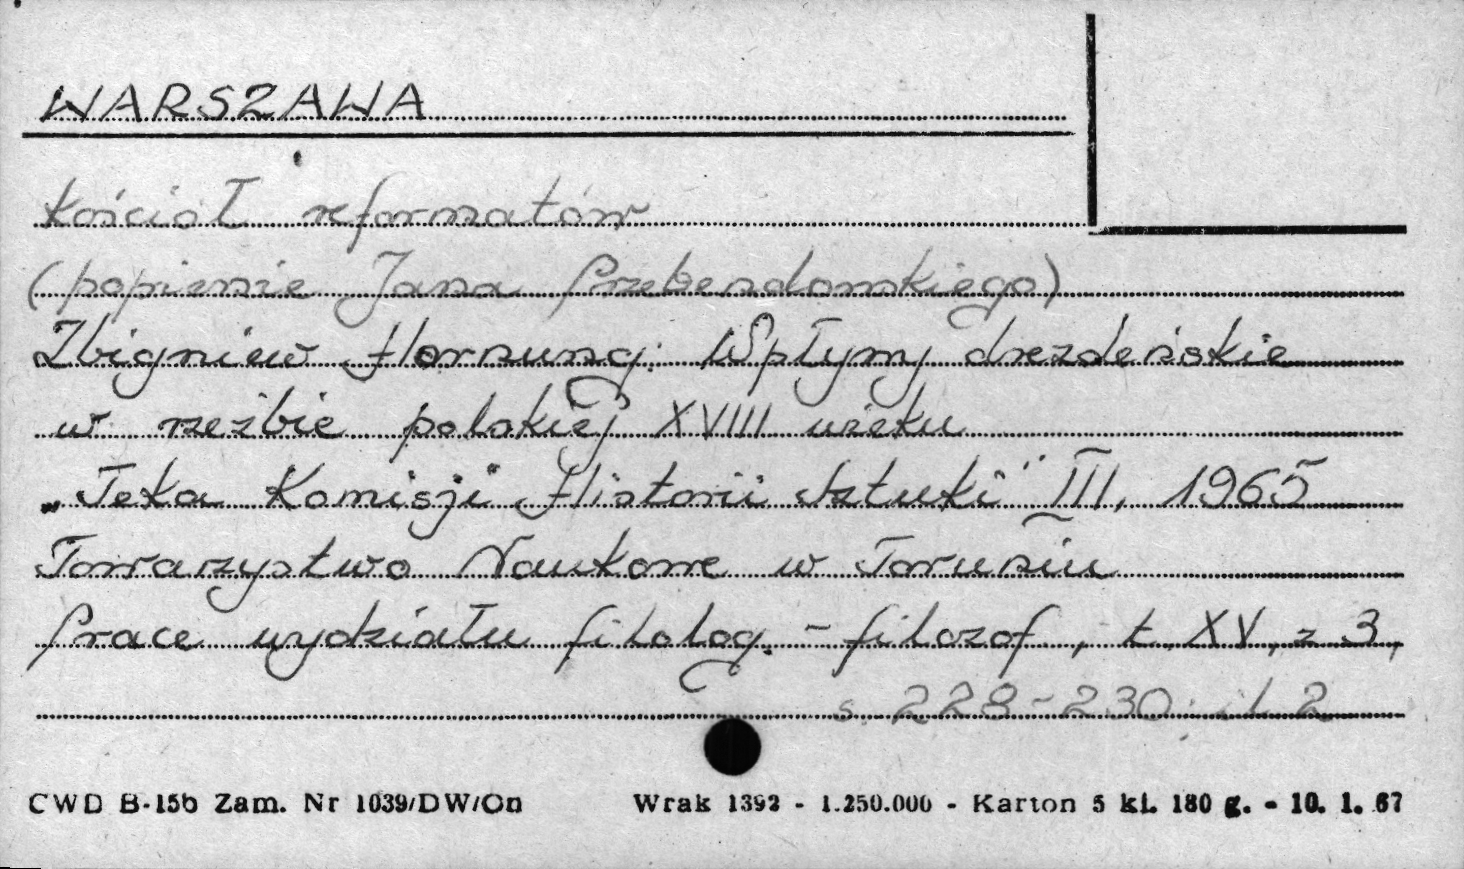 WARSZAWA
kościół reformatów
(popiersie Jana Przebendowskiego)
Zbigniew Hornung: Wpływy drezdeńskie
w rzeźbie polskiej XVIII wieku
„Teka Komisji Historii Sztuki" III, 1965
Towarzystwo Naukowe w Toruniu
Prace wydziału filolog. - filozof, t XV, z 3,
s. 228-230. il 2
CWD B-15b Zam. Nr 1039/DW/On Wrak 1392 - 1.250.000 - Karton 5 kl. 180 g. - 10. 1. 67